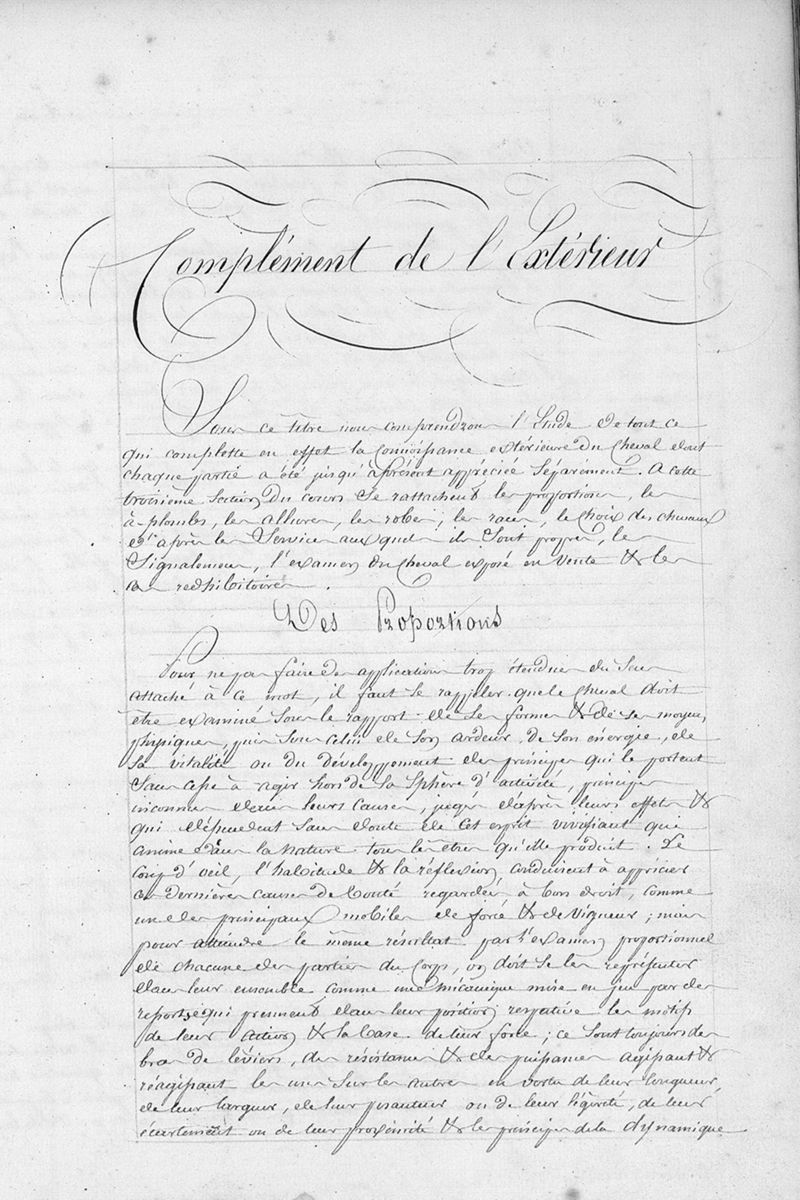 Complément de l'Extérieur
Sous ce titre nous comprendrons l'Etude de tout ce
qui complette en effet la connoissance extérieure du Cheval dont
chaque partie a été jusqu'à présent appréciée Séparément. A cette
troisième Section du cours Se rattachent les proportions, les
à-plombs, les allures, les robes, les races, le choix des chevaux
d'après les Services auxquels ils Sont propres, les
Signalemens, l'examen du Cheval exposé en vente & les
cas redhibitoires.
Des Proportions
Pour ne pas faire des applications trop étendues du Sens
attaché à ce mot, il faut Se rappeler que le Cheval doit
être examiné Sous le rapport de Ses formes & de Ses moyens
physiques, puis Sous celui de Son ardeur, de Son énergie, de
Sa vitalité ou du développement des principes qui le portent
Sans cesse à agir hors de Sa Sphère d'activité, principes
inconnus dans leurs Causes, jugés d'après leurs effets &
qui dépendent Sans doute de cet esprit vivifiant qui
anime dans la nature tous les êtres qu'elle produit. Le
Coup d'oeil, l'habitude & la réflexion conduisent à apprécier
ces dernières causes de bonté regardées à bon droit, comme
un des principaux mobiles de force & de vigueur ; mais
pour attendre le même résultat par l'examen proportionnel
de chacune des parties du Corps, on doit Se les représenter
dans leur ensemble comme une mécanique mise en jeu par des
qui prennent dans leur position respective les motifs
de leur action & la base de leur force ; ce Sont toujours des
bras de léviers, des résistances & des puissances agissant &
réagissant les uns Sur les autres en vertu de leur longueur,
de leur largeur, de leur pesanteur ou de leur légèreté, de leur
écartement ou de leur proximité & les principes de la dynamique